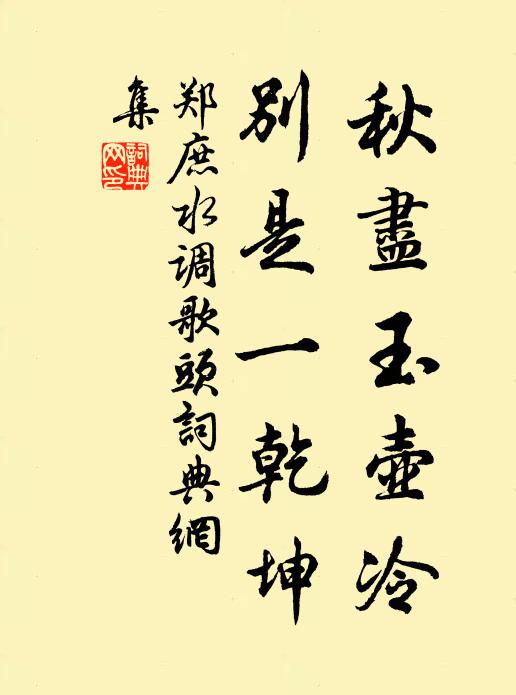 秋盡玉壺冷
別是一乾坤
郑庶水调歌頭詞典網
集
詞典網印